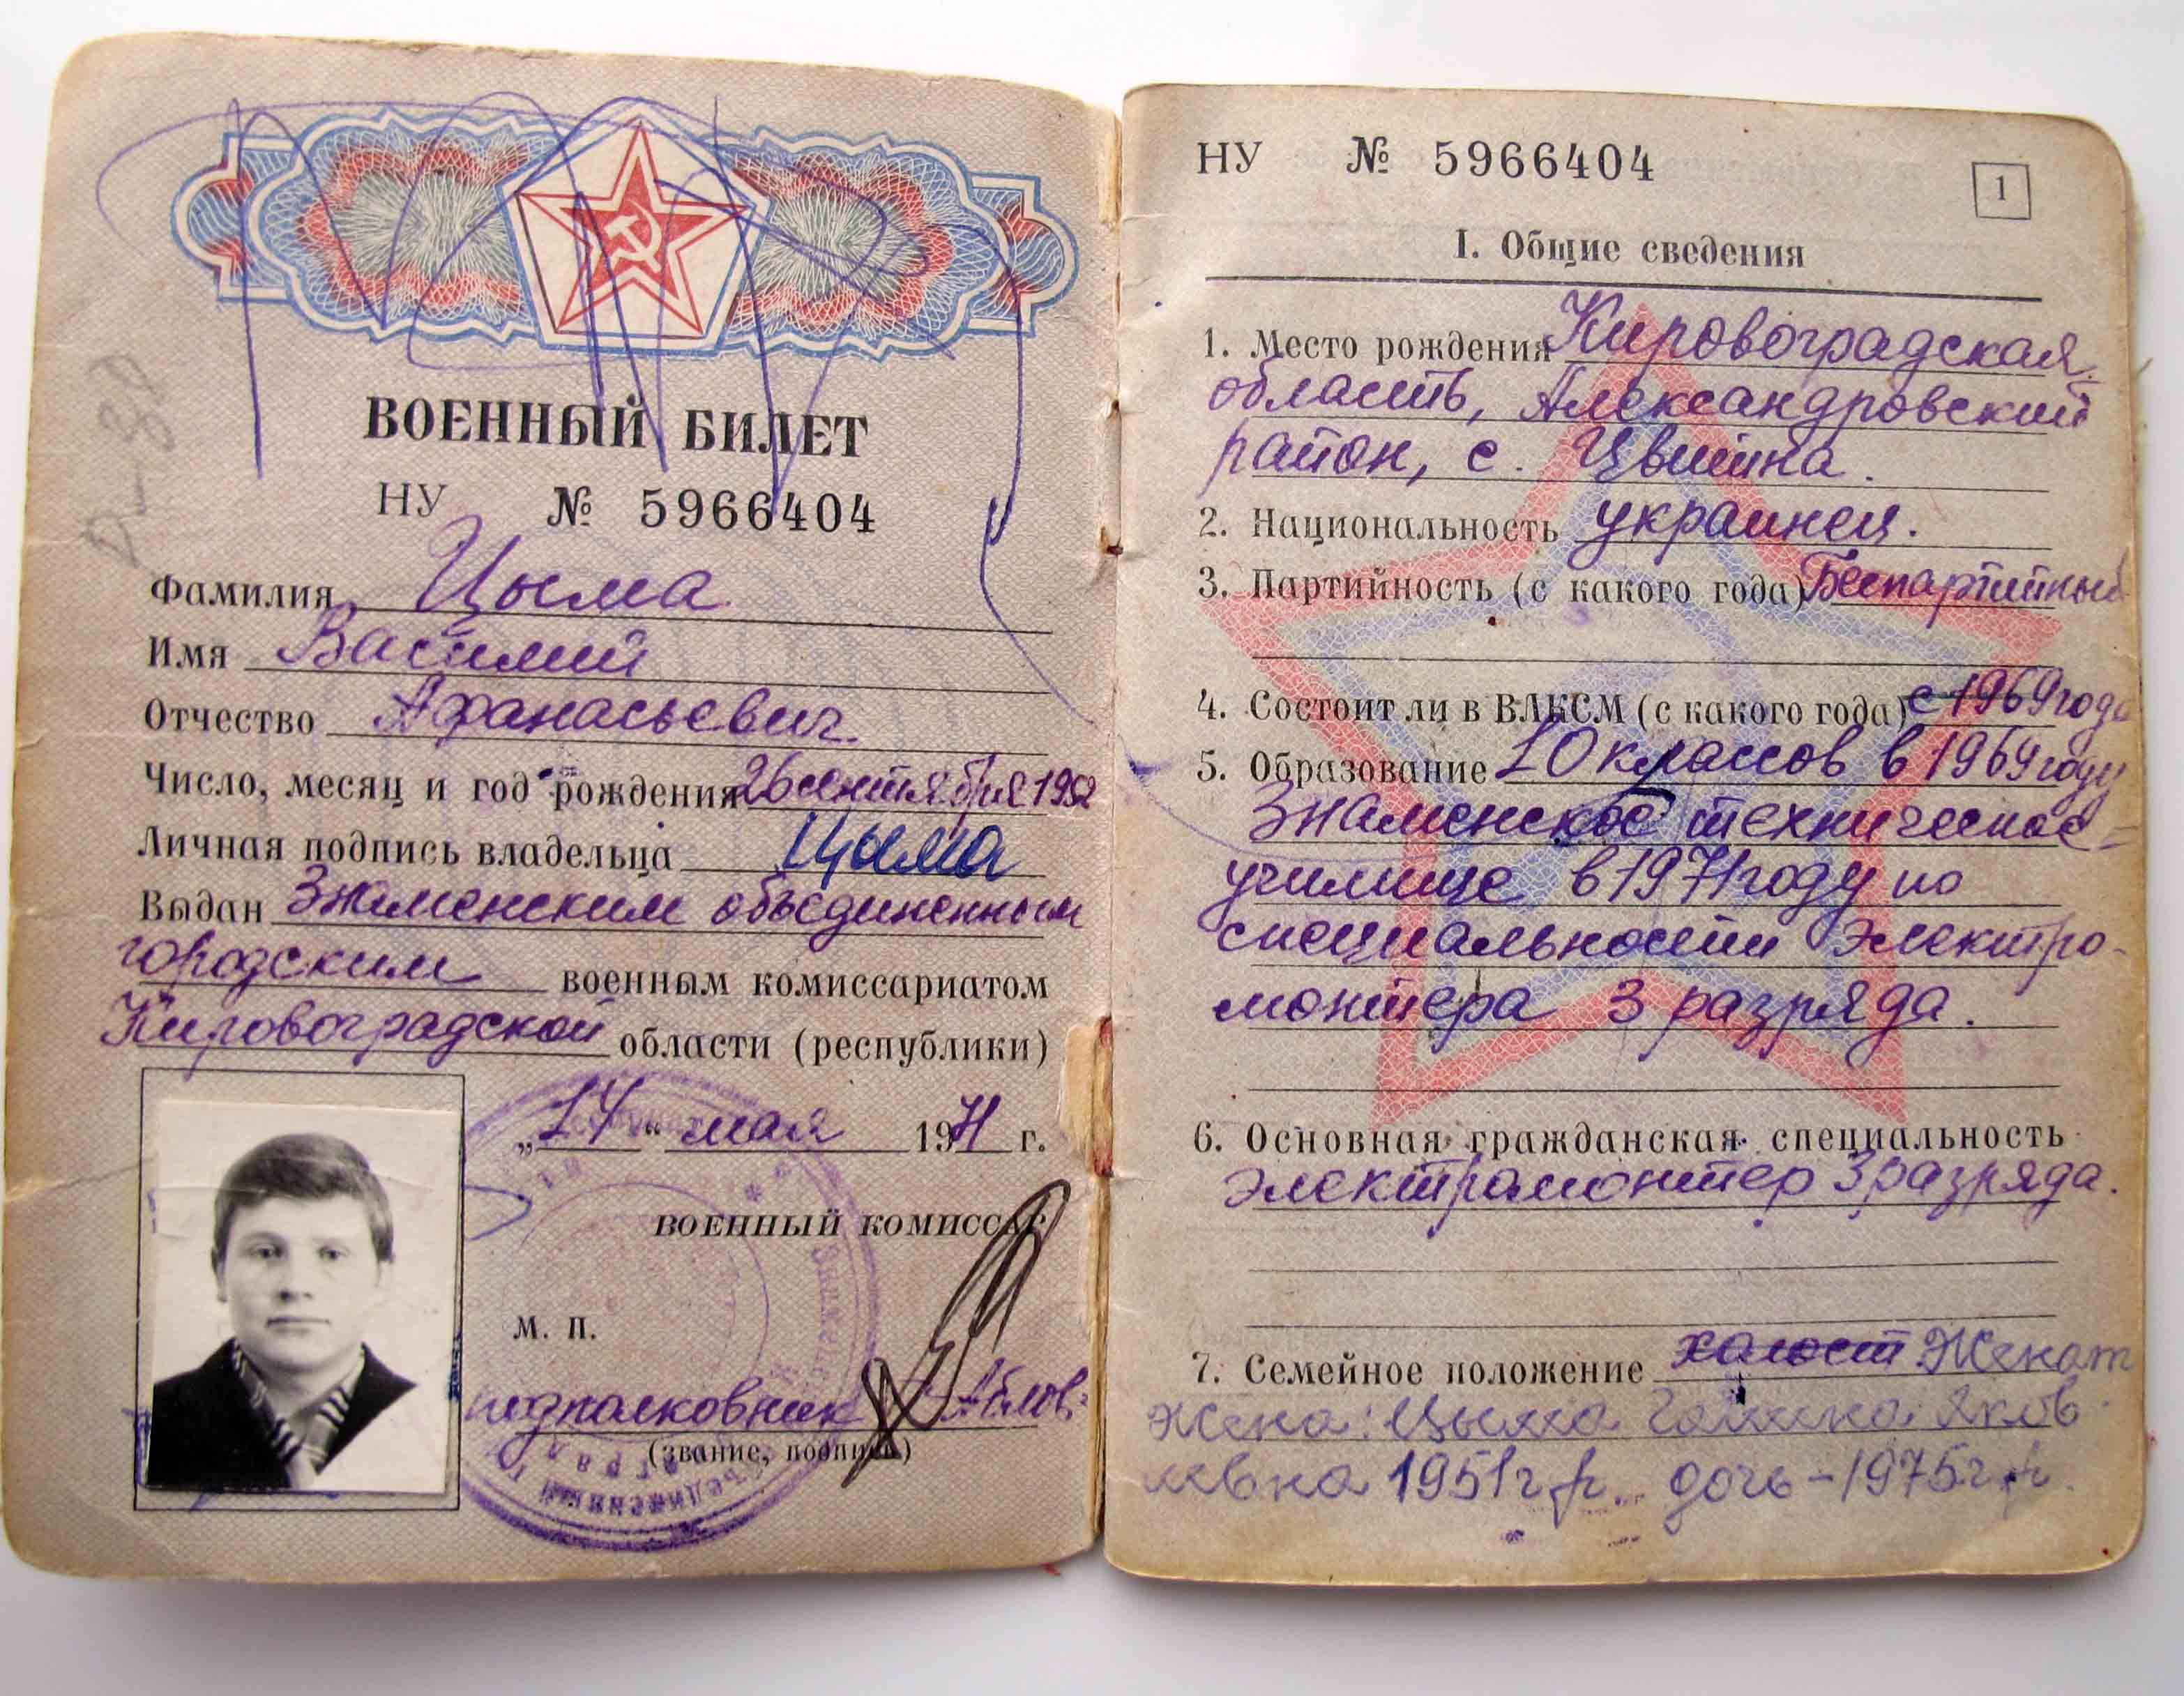 ВОЕННЫЙ БИЛЕТ
НУ № 5966404
Фамилия Цыма
Имя Василий
Отчество Афанасьевич.
Число, месяц и год рождения 26 сентября 1952
Личная подпись владельца Цыма
Выдан Знаменским объединенным
городским военным комиссариатом
Кировоградской области (республики)
„14“ мая 1971 г.
ВОЕННЫЙ КОМИССАР
М. П.
подполковник
(звание, подпись)
НУ № 5966404
1
I. Общие сведения
1. Место рождения Кировоградская
область, Александровский
район, с. Цвитна.
2. Национальность украинец.
3. Партийность (с какого года) Беспартийный
4. Состоит ли в ВЛКСМ (с какого года) с 1969 года
5. Образование 10 классов в 1969 году
Знаменское техническое
училище в 1971 году по
специальности электро-
монтера 3 разряда.
6. Основная гражданская специальность
электромонтер 3 разряда.
7. Семейное положение холост Женат
жена: Цыма Галина Яков
левна 1951 г.р. дочь – 1975 г.р.